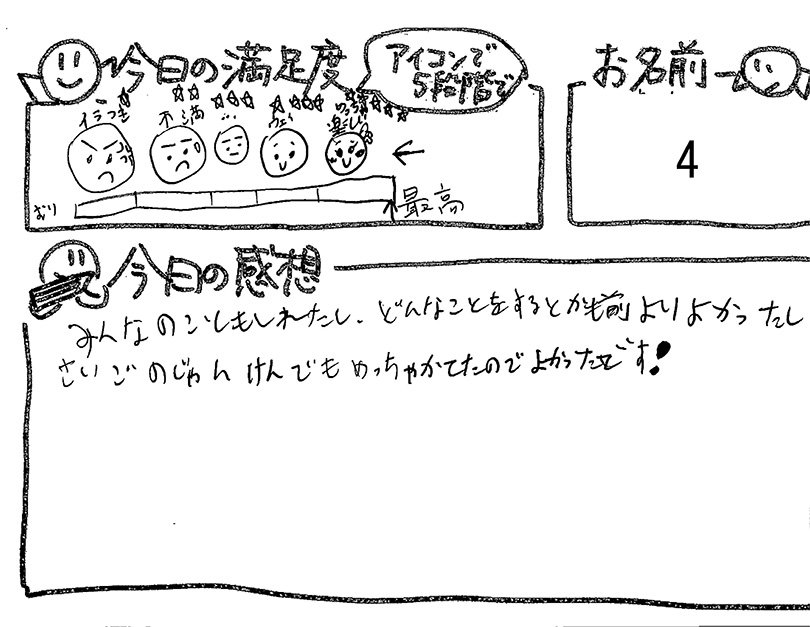 今日の満足度
アイコンで
5段階で
お名前
イラつき
不満
楽しい
4
最高
今日の感想
みんなのこしもしれたし、どんなことをするとかも前よりよかったし
さいごのじゃんけんでもめっちゃかてたのでよかったです!